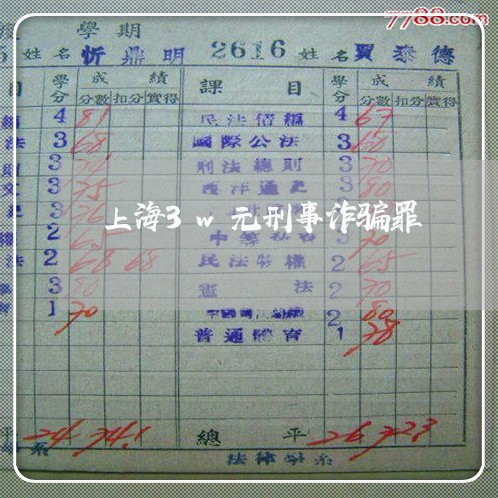 7788.com
學期
姓名 忻鼎明 2616 姓名 賈泰德
目 學分 成績 課目 學分 成績
分數 扣分 實得 分數 扣分 實得
4 81 民法債編 4 67
法 3 68 國際公法 3 60
3 刑法總則 3 70
文 3 75 西洋通史 3 80
3 76
上海3w元刑事诈骗罪
2 65 3 70
法 2 68 68 民法物權 2 65
3 80 憲法 2 70
1 70 2 80
普通體育 1 78
平 24 74.1 總平 26 72.3
系 法律學系